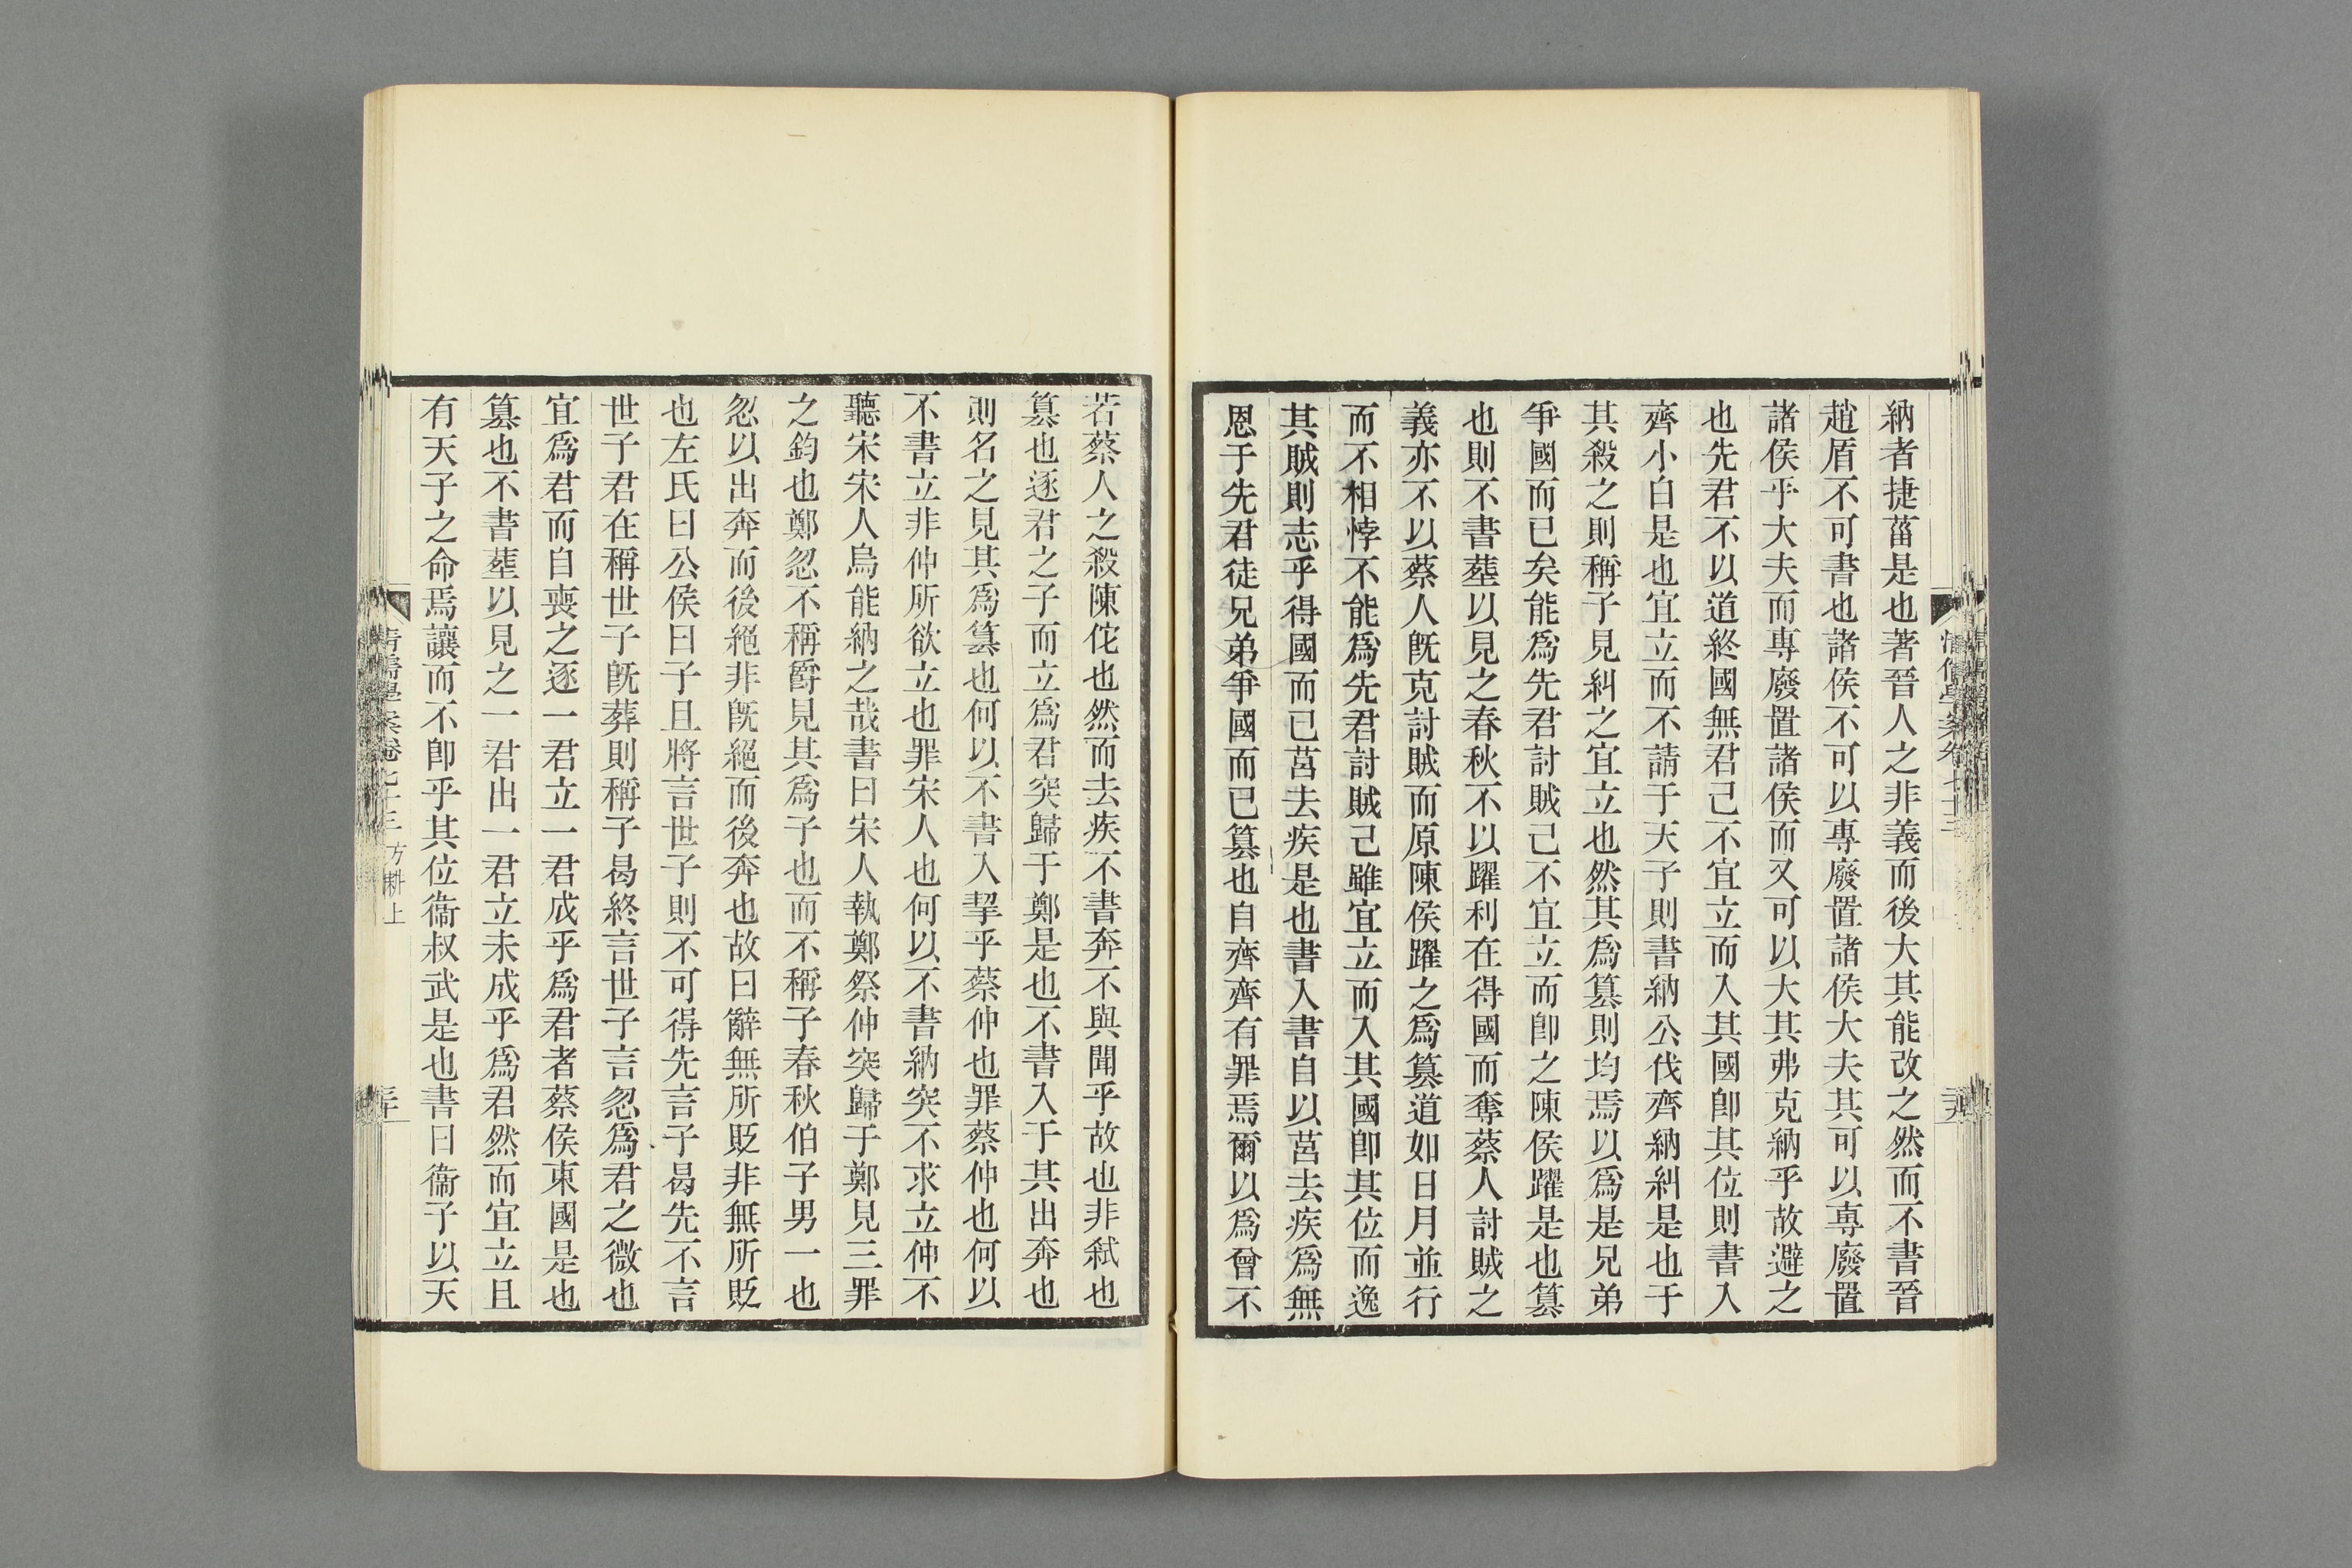 納者捷菑是也著晉人之非義而後大其能改之然而不書晉
趙盾不可書也諸侯不可以專廢置諸侯大夫其可以專廢置
諸侯乎大夫而專廢置諸侯而又可以大其弗克納乎故避之
也先君不以道終國無君己不宜立而入其國卽其位則書入
齊小白是也宜立而不請于天子則書納公伐齊納糾是也于
其殺之則稱子見糾之宜立也然其爲篡則均焉以爲是兄弟
爭國而已矣能爲先君討賊己不宜立而卽之陳侯躍是也篡
也則不書葬以見之春秋不以躍利在得國而奪蔡人討賊之
義亦不以蔡人旣克討賊而原陳侯躍之爲篡道如日月並行
而不相悖不能爲先君討賊己雖宜立而入其國卽其位而逸
其賊則志乎得國而已莒去疾是也書入書自以莒去疾爲無
恩于先君徒兄弟爭國而已篡也自齊齊有罪焉爾以爲曾不
若蔡人之殺陳佗也然而去疾不書奔不與聞乎故也非弑也
篡也逐君之子而立爲君突歸于鄭是也不書入于其出奔也
則名之見其爲篡也何以不書入挈乎蔡仲也罪蔡仲也何以
不書立非仲所欲立也罪宋人也何以不書納突不求立仲不
聽宋宋人烏能納之哉書曰宋人執鄭祭仲突歸于鄭見三罪
之鈞也鄭忽不稱爵見其爲子也而不稱子春秋伯子男一也
忽以出奔而後絕非旣絕而後奔也故曰辭無所貶非無所貶
也左氏曰公侯曰子且將言世子則不可得先言子曷先不言
世子君在稱世子旣葬則稱子曷終言世子言忽爲君之微也
宜爲君而自喪之逐一君立一君成乎爲君者蔡侯東國是也
篡也不書葬以見之一君出一君立未成乎爲君然而宜立且
有天子之命焉讓而不卽乎其位衞叔武是也書曰衞子以天
清儒學案卷七十三 方耕上